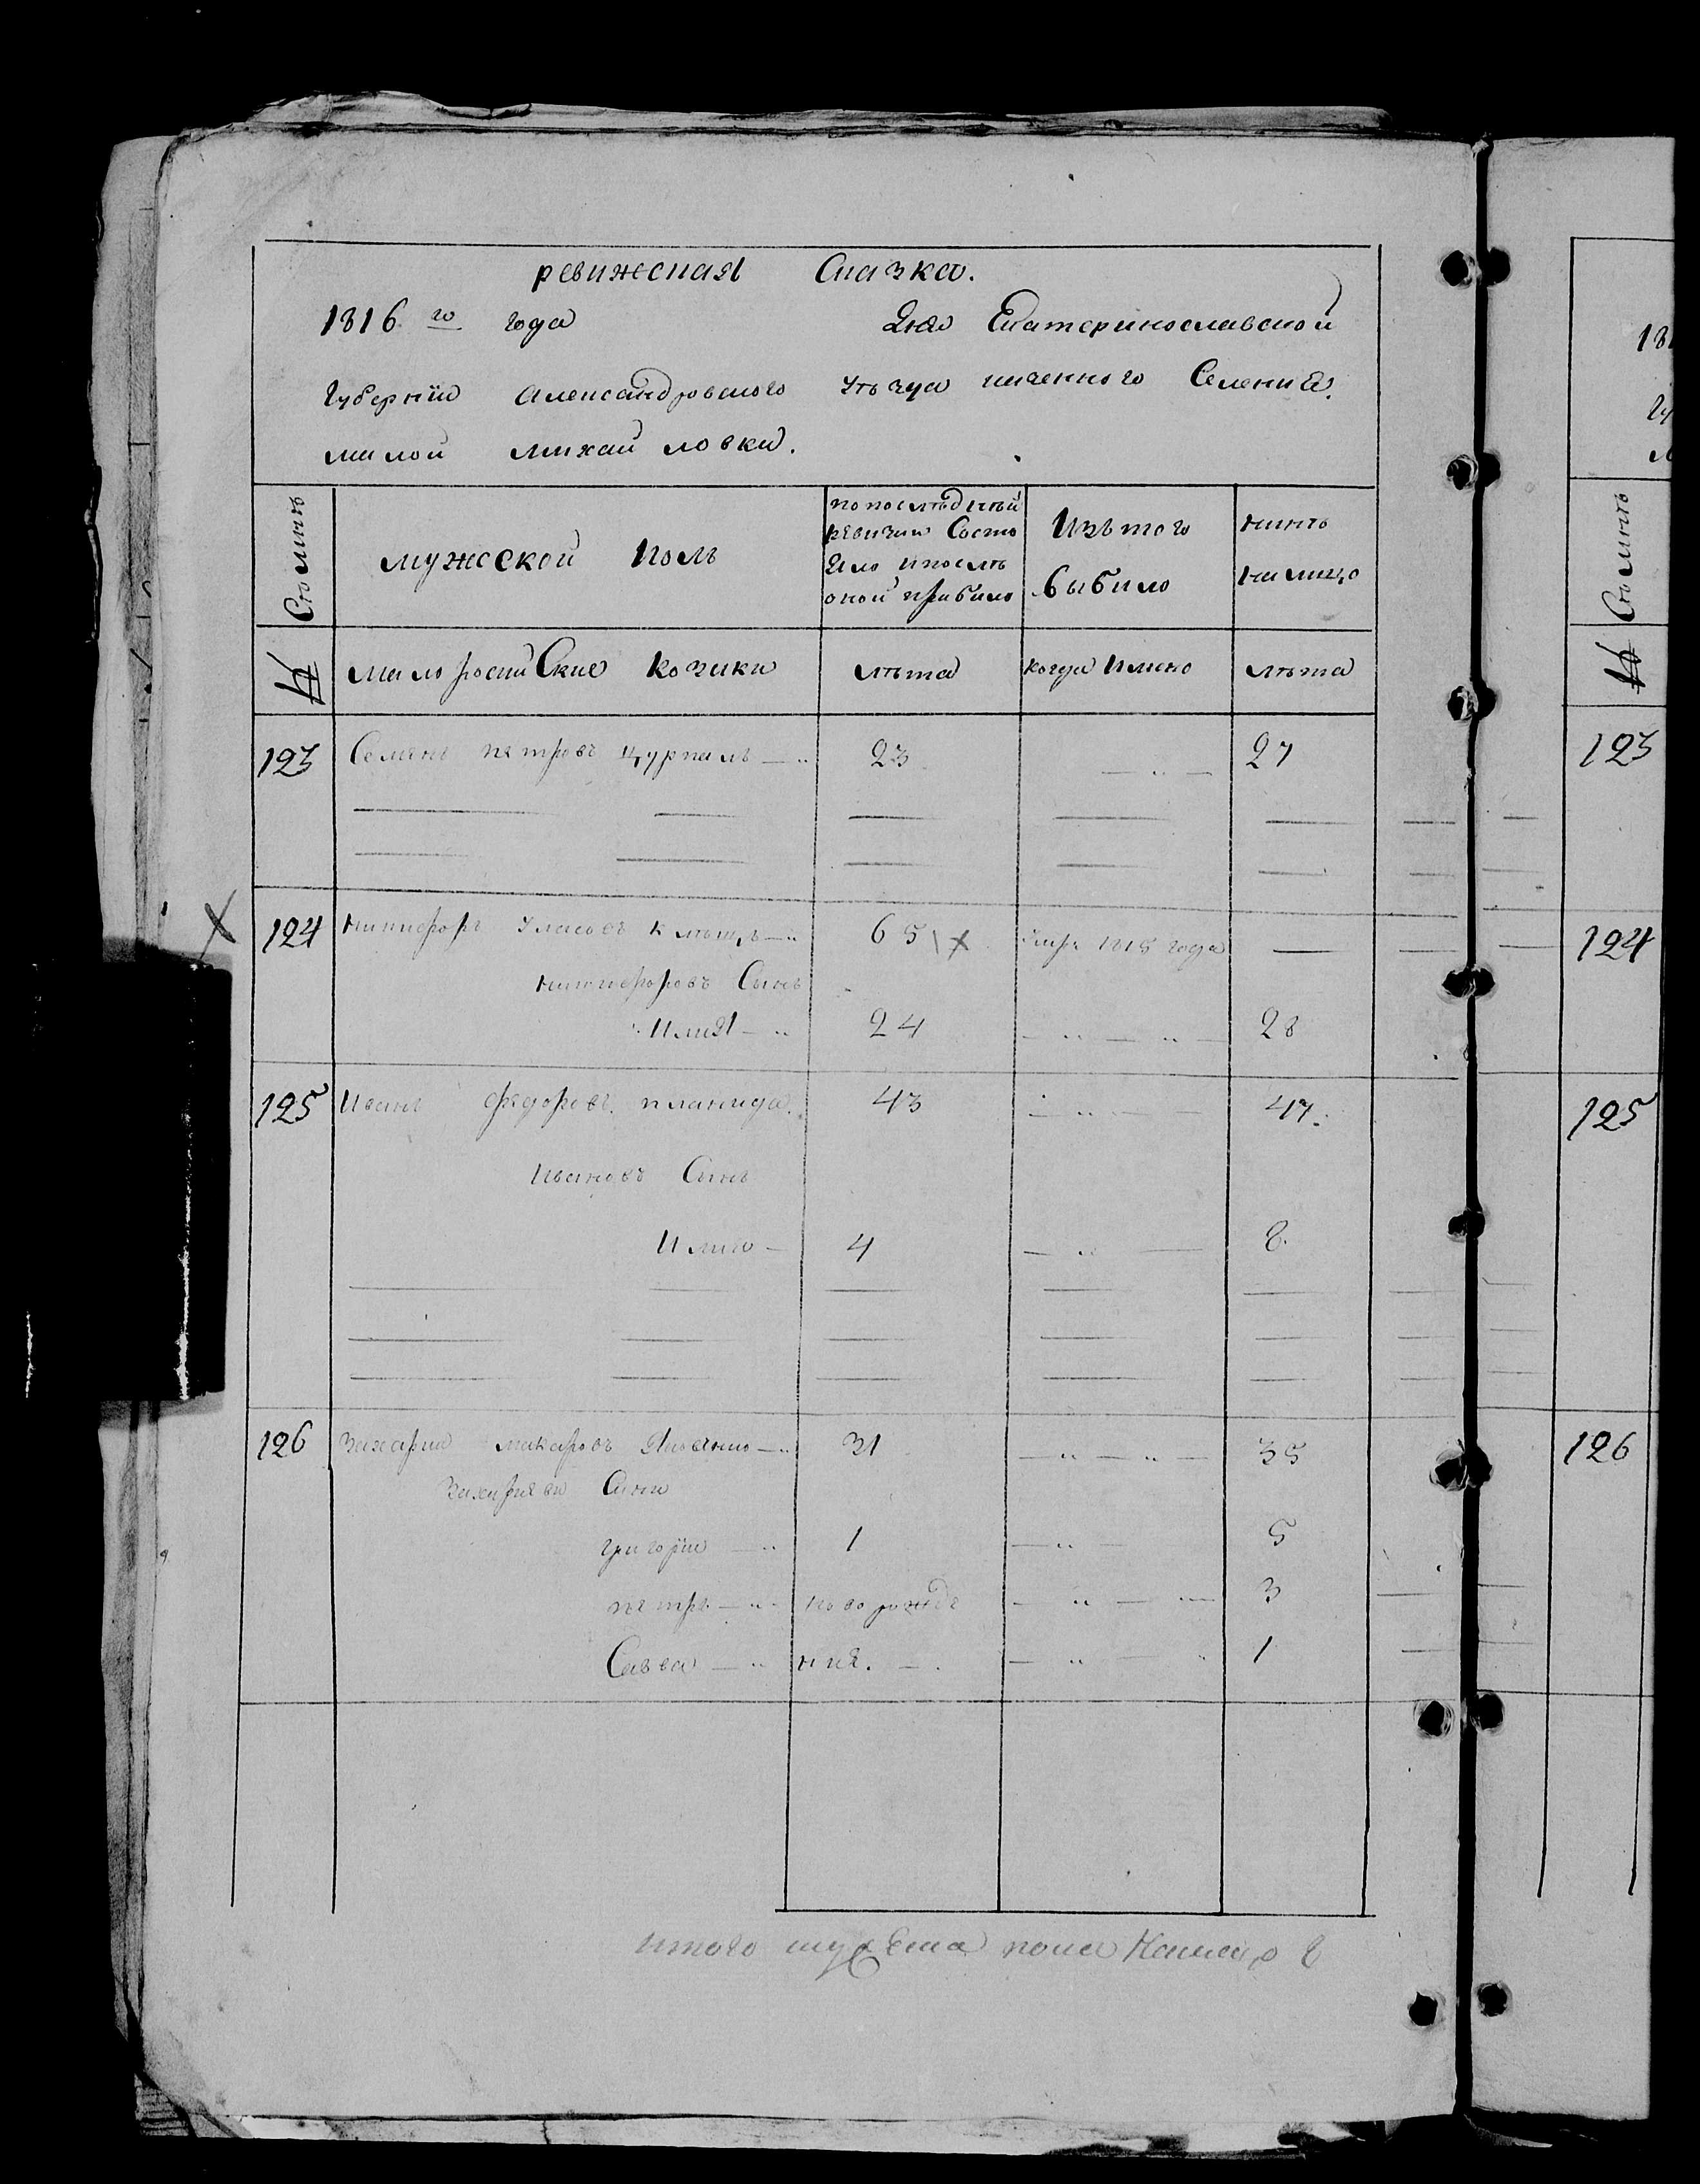 ревижеская Сказка.
1816 го года Дня Екатеринославской
Губернии Александровского уѣзда казенного Селения
малой михайловки.
Семьи
мужеской полъ
по последнѣй
ревизии Состо
яло и послѣ
оной прибыло
Изъ того
выбыло
нинѣ
на лицо
№
малоросийские козаки
лѣта
когда имено
лѣта
123 Семенъ петровъ 23 27
124 Никифоръ Уласовъ 65 х умре 1815 года
никифоровъ Синъ
Илия 24 28
125 Иванъ федоровъ планида 43 47.
Ивановъ Синъ
Илия 4 8.
126 Захарий макаровъ Яковенко 31 35
Захариеви Сини
григорий 1 5
петръ новорожде 3
Савва ния. 1
итого мужеска пола налицо 8
18
Гу
м
Семьи
№
123
124
125
126